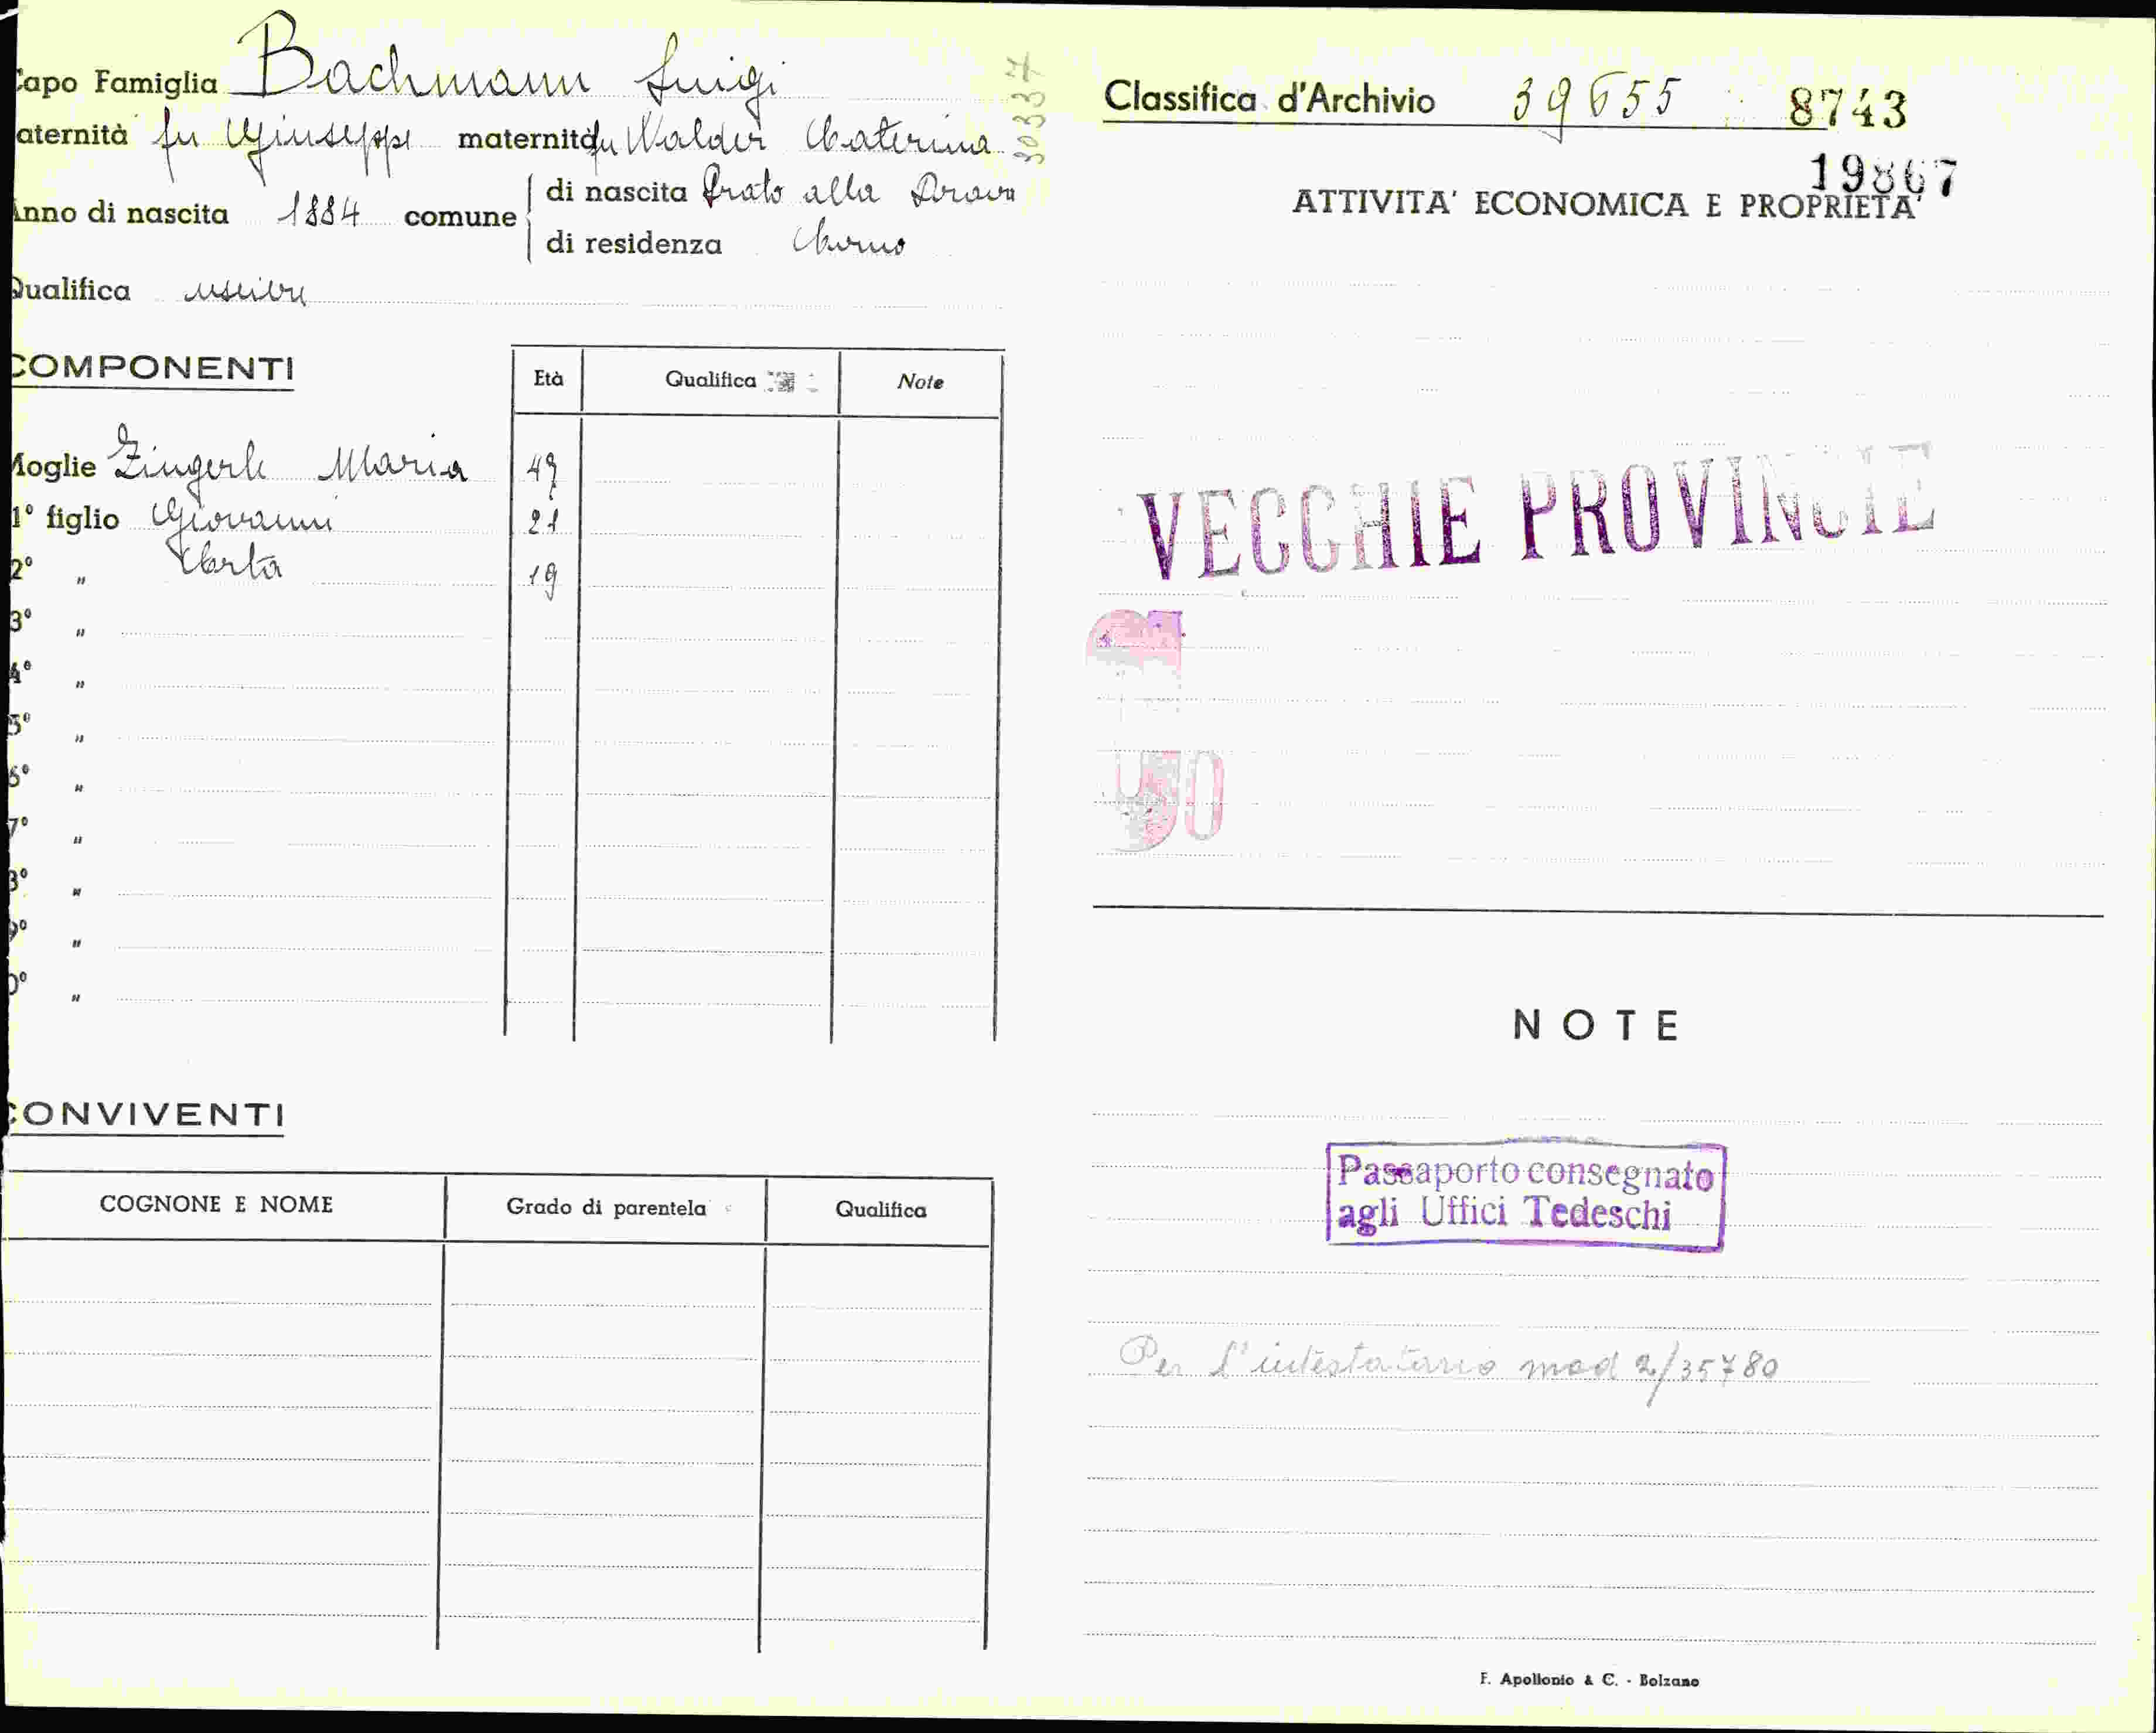 Capo Famiglia Bachmann Luigi
aternità fu Giuseppe maternità fu Walder Caterina
303337
Anno di nascita 1884 comune di nascita Prato alla Drava
di residenza
Qualifica usciere
COMPONENTI Età Qualifica Note
Moglie Zingerle Maria 47
1° figlio Giovanni 21
2° " 19
3° "
4° "
5° "
6° "
7° "
8° "
9° "
0° "
CONVIVENTI
COGNONE E NOME Grado di parentela Qualifica
Classifica d'Archivio 39655 8743
19867
ATTIVITA' ECONOMICA E PROPRIETA'
VECCHIE PROVINCIE
NOTE
Passaporto consegnato
agli Uffici Tedeschi
Per l'intestatario mod 2/35780
F. Apollonio & C. - Bolzano